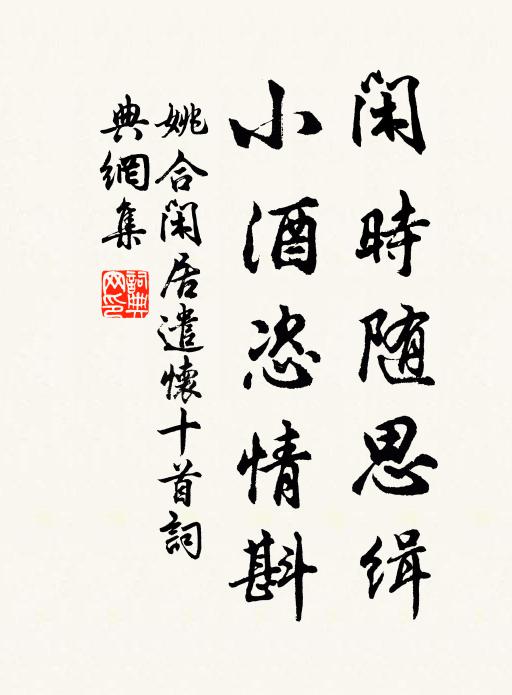 閑時随思缉
小酒恣情斟
姚合閑居遣懷十首詞
典網集
詞典网印